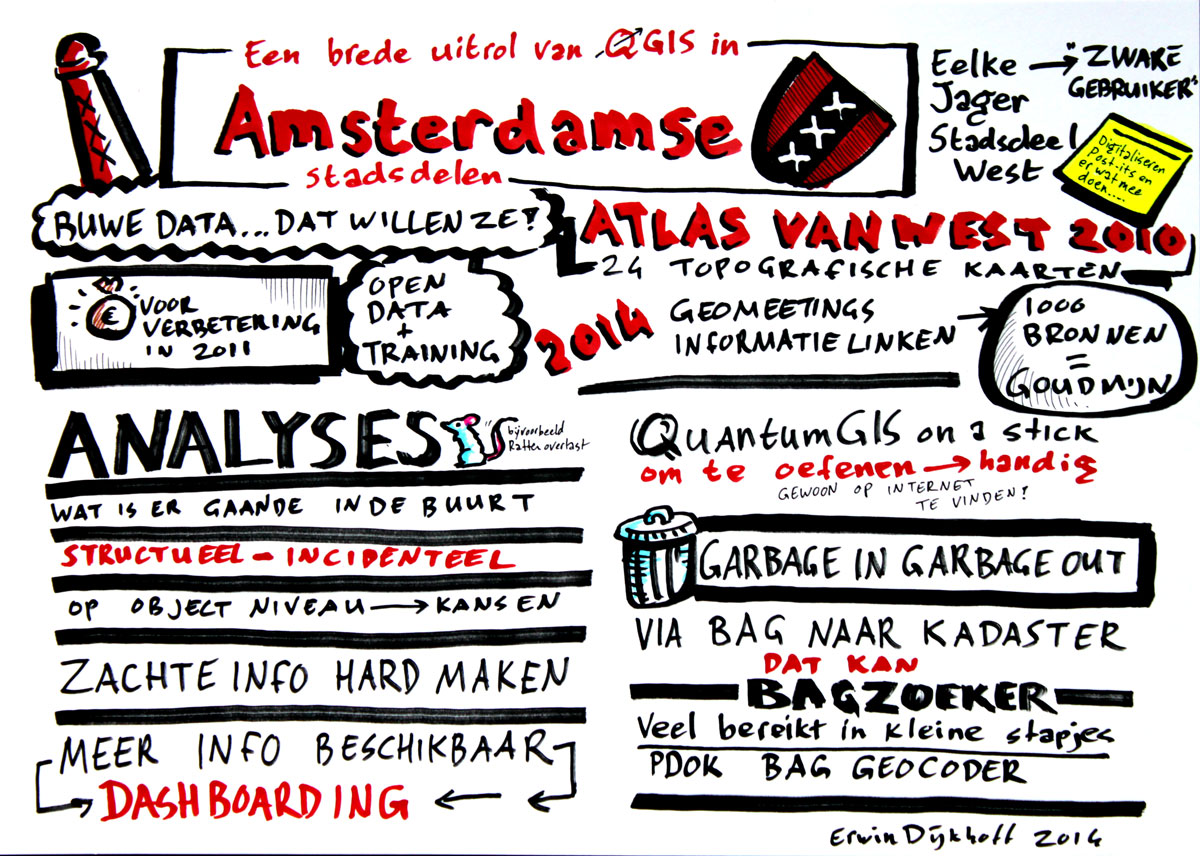 Een brede uitrol van QGIS in
Amsterdamse
stadsdelen
Eelke → "ZWARE
GEBRUIKER"
Jager
Stadsdeel
West
Digitaliseren
Post-its en
er wat mee
doen....
RUWE DATA... DAT WILLEN ZE!
ATLAS VAN WEST 2010
24 TOPOGRAFISCHE KAARTEN
€ VOOR
VERBETERING
IN 2011
OPEN
DATA
+
TRAINING
2014
GEOMEETINGS
INFORMATIE LINKEN →
1000
BRONNEN
=
GOUDMIJN
ANALYSES
bijvoorbeeld
Ratten overlast
WAT IS ER GAANDE IN DE BUURT
STRUCTUEEL - INCIDENTEEL
OP OBJECT NIVEAU → KANSEN
ZACHTE INFO HARD MAKEN
MEER INFO BESCHIKBAAR
DASHBOARDING
QuantumGIS on a stick
om te oefenen → handig
GEWOON OP INTERNET
TE VINDEN!
GARBAGE IN GARBAGE OUT
VIA BAG NAAR KADASTER
DAT KAN
BAGZOEKER
Veel bereikt in kleine stapjes
PDOK BAG GEOCODER
Erwin Dijkhoff 2014